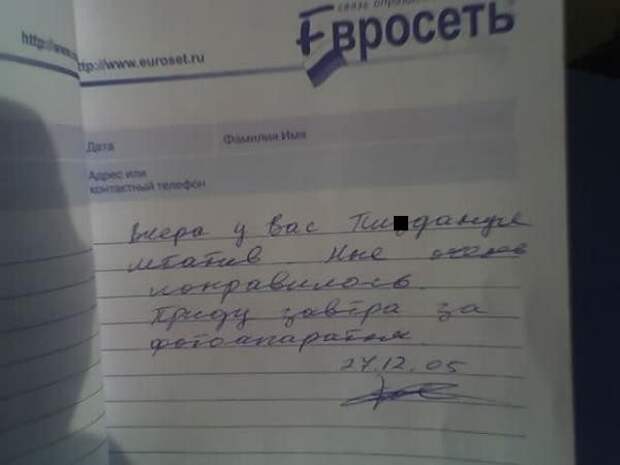 http://www.
http://www.euroset.ru
связь
Евросеть
Дата
Фамилия Имя
Адрес или
контактный телефон
Вчера у вас
штатив. Мне очень
понравилось.
Приду завтра за
фотоаппаратом.
27.12.05